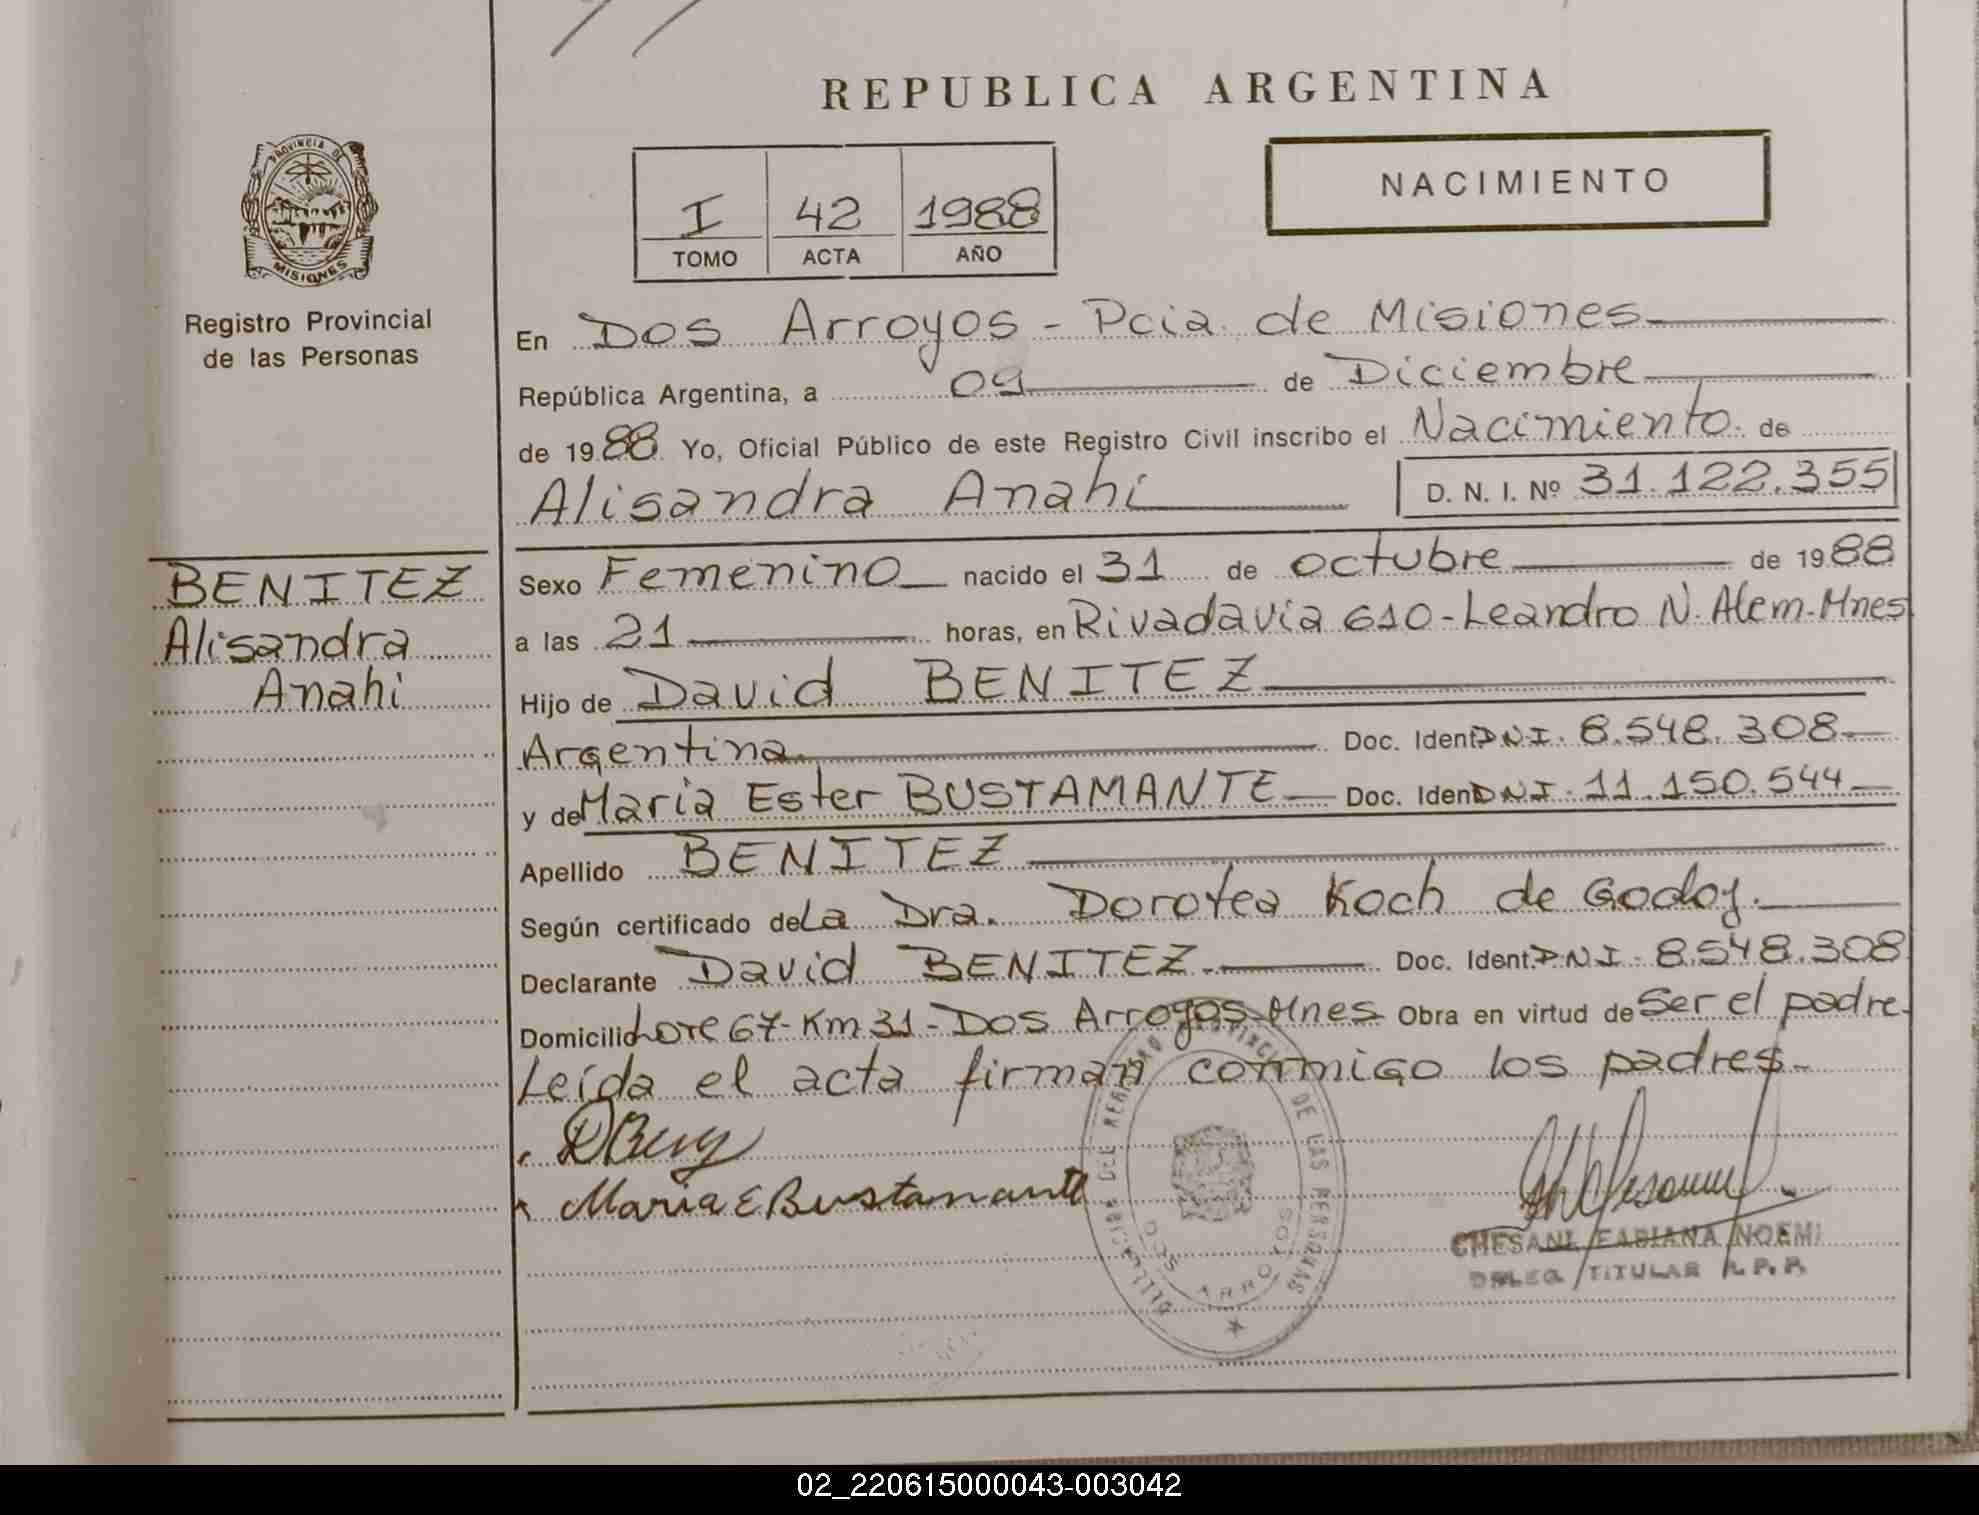 REPUBLICA ARGENTINA
PROVINCIA DE
MISIONES
Registro Provincial
de las Personas
NACIMIENTO
I 42 1988
TOMO ACTA AÑO
En Dos Arroyos - Pcia. de Misiones
República Argentina, a 09 de Diciembre
de 1988 Yo, Oficial Público de este Registro Civil inscribo el Nacimiento de
Alisandra Anahi D. N. I. Nº 31.122.355
BENITEZ
Alisandra
Anahi
Sexo Femenino nacido el 31 de octubre de 1988
a las 21 horas, en Rivadavia 610-Leandro N. Alem-Mnes
Hijo de David BENITEZ
Argentina Doc. Ident. DNI. 8.548.308
y de Maria Ester BUSTAMANTE Doc. Ident. DNI. 11.150.544
Apellido BENITEZ
Según certificado de La Dra. Dorotea Koch de Godoy.
Declarante David BENITEZ. Doc. Ident. DNI. 8.548.308
Domicilio Lote 67-Km 31-Dos Arroyos-Mnes Obra en virtud de Ser el padre.
Leída el acta firman conmigo los padres.
Maria E Bustamante
DELEGACION DEL REGISTRO PROVINCIAL DE LAS PERSONAS
DOS ARROYOS
CHESANI FABIANA NOEMI
DELEG TITULAR R.P.P.
02_220615000043-003042